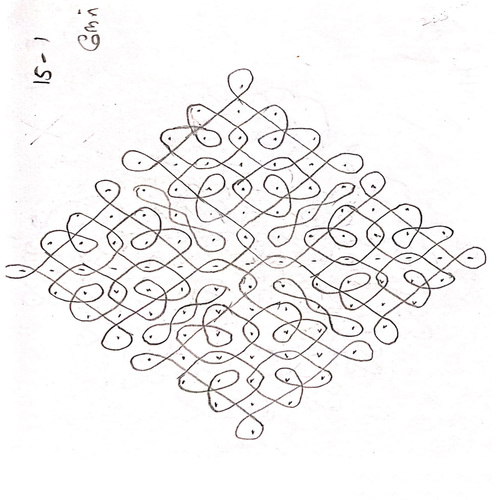 15 - 1
நேர்